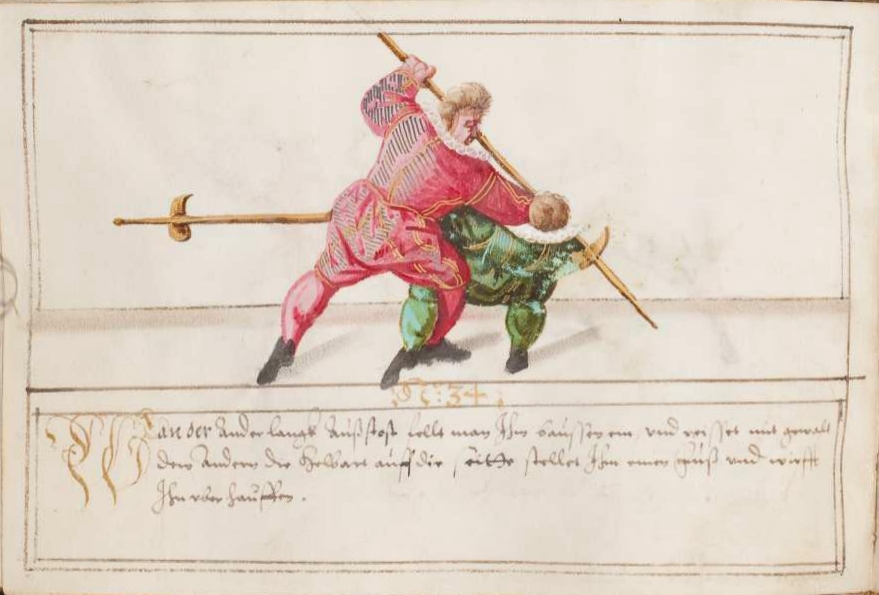 No: 34.
Wan der Ander langk Außstost fellt man Ihm daussen ein, und reisset mit gewalt
dem Andern die Helbart auff die seitte stellet Ihm einen Fuß und wirfft
Ihn uber hauffen.